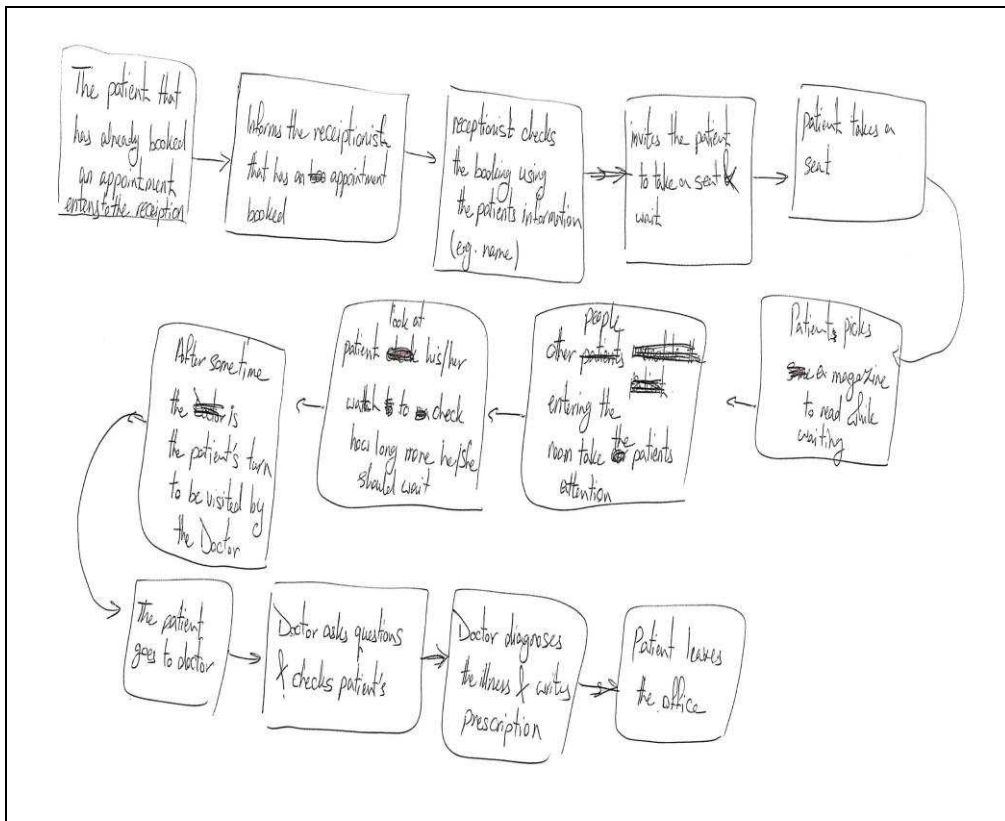 The patient that
has already booked
an appointment
enters to the receiption
Informs the receiptionist
that has an appointment
booked
receptionist checks
the booking using
the patients information
(e.g. name)
invites the patient
to take a seat &
wait
patient takes a
seat
Patients picks
a magazine
to read while
waiting
people
other patients
entering the
room take the patients
attention
look at
patient his/her
watch to check
how long more he/she
should wait
After sometime
the is
the patient's turn
to be visited by
the Doctor
The patient
goes to doctor
Doctor asks questions
& checks patient's
Doctor diagnoses
the illness & writes
prescription
Patient leaves
the office